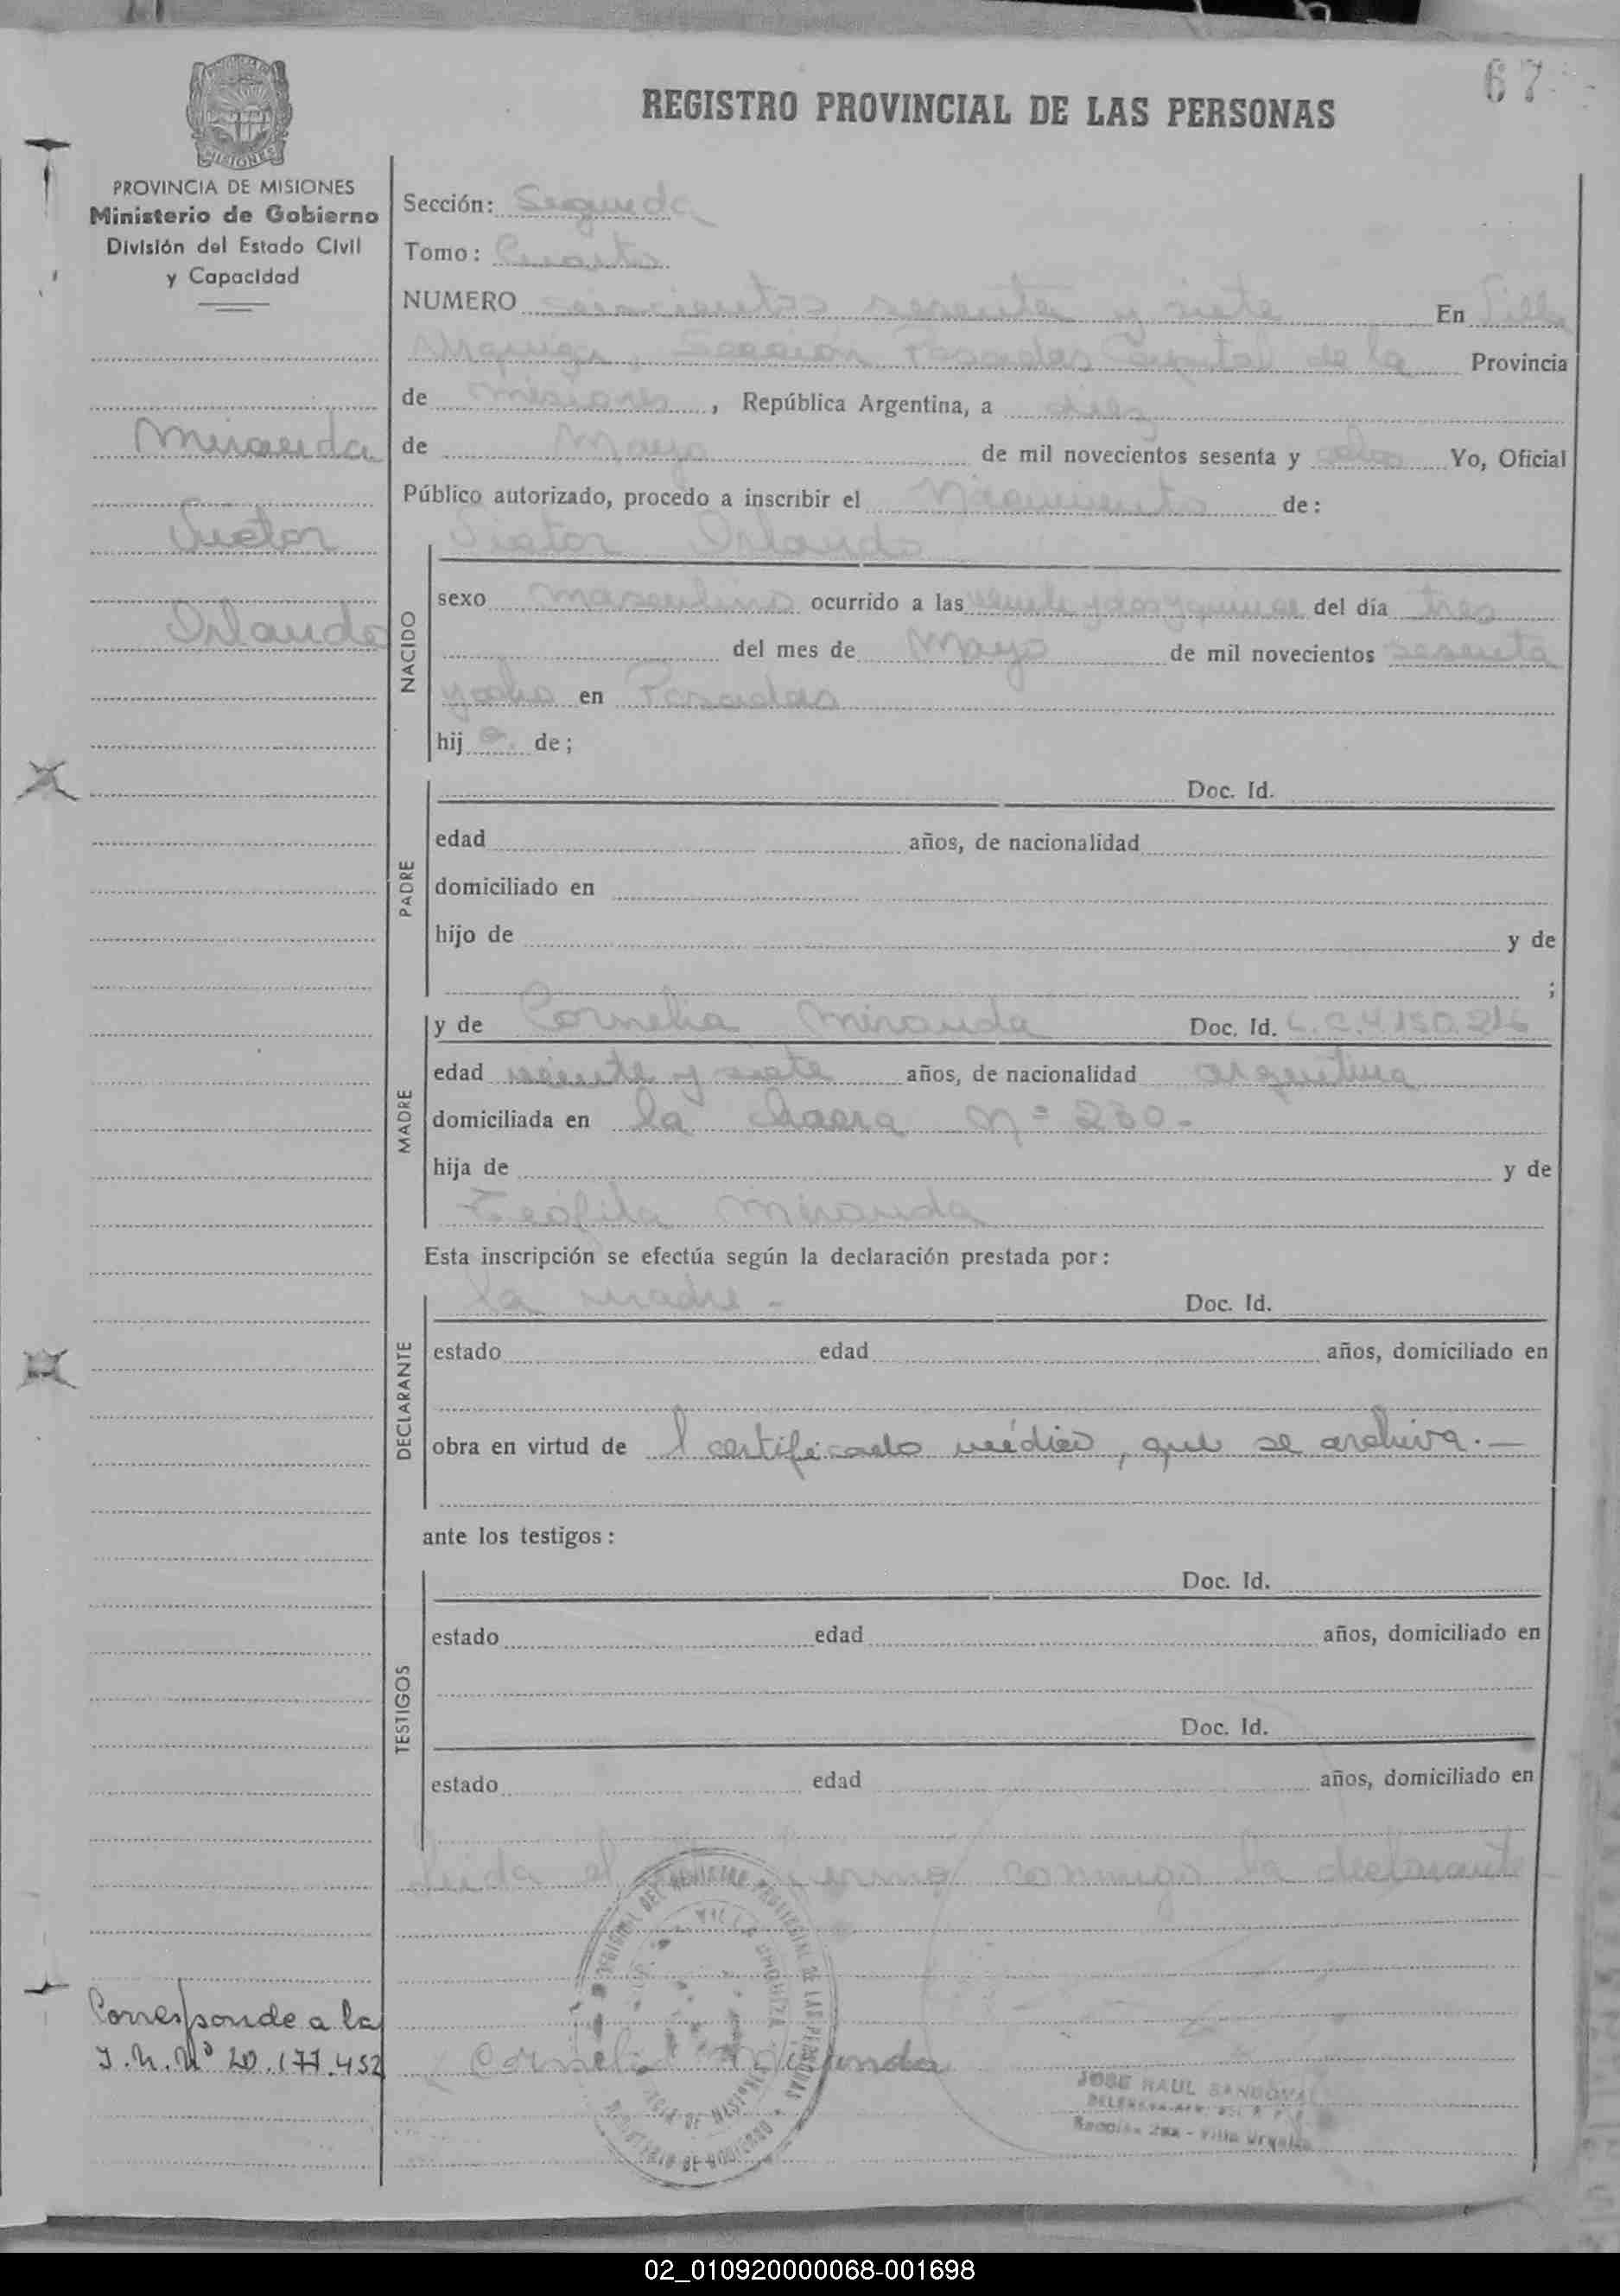 67
REGISTRO PROVINCIAL DE LAS PERSONAS
MISIONES
PROVINCIA DE MISIONES
Ministerio de Gobierno
División del Estado Civil
y Capacidad
Miranda
Victor
Orlando
Sección: Segunda
Tomo: Cuarto
NUMERO seiscientos sesenta y siete En Villa
Urquiza, Sección Posadas Capital de la Provincia
de Misiones, República Argentina, a diez
de Mayo de mil novecientos sesenta y ocho Yo, Oficial
Público autorizado, procedo a inscribir el Nacimiento de:
NACIDO
Victor Orlando
sexo masculino ocurrido a las veinte y dos y quince del día tres
del mes de Mayo de mil novecientos sesenta
y ocho en Posadas
hijo de;
PADRE
Doc. Id.
edad años, de nacionalidad
domiciliado en
hijo de y de
;
MADRE
y de Cornelia Miranda Doc. Id. L.C.4.150.216
edad veinte y siete años, de nacionalidad argentina
domiciliada en la chacra Nº 230.-
hija de y de
Teófila Miranda
Esta inscripción se efectúa según la declaración prestada por:
DECLARANTE
la madre - Doc. Id.
estado edad años, domiciliado en
obra en virtud de l certificado médico, que se archiva.-
ante los testigos:
TESTIGOS
Doc. Id.
estado edad años, domiciliado en
Doc. Id.
estado edad años, domiciliado en
Leida el firmo conmigo la declarante
Corresponde a la
I.N.Nº 20.177.452
Cornelia Miranda
JOSE RAUL SANDOVAL
Villa Urquiza
02_010920000068-001698